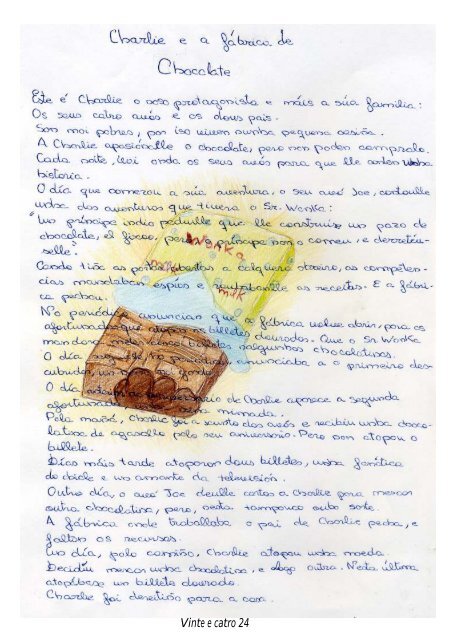 Charlie e a fábrica de
Chocolate
Este é Charlie o voso protagonista e máis a súa familia:
Os seus catro avós e os dous pais.
Son moi pobres, por iso viven nunha pequena casiña.
A Charlie apaixónalle o chocolate, pero non poden compralo.
Cada noite, vai onda os seus avós para que lle conten unha
historia.
O día que comezou a súa aventura, o seu avó Joe, contoulle
unha das aventuras que tivera o Sr. Wonka:
"Un príncipe indio pediulle que lle construíse un pazo de
chocolate, el fíxoo, pero o príncipe non o comeu, e derreteu-
selle".
Wonka
milk
milk
Cando tiña as portas abertas a calquera obreiro, as competen-
cias mandaban espías e roubábanlle as receitas. E a fábri-
ca pechou.
No periódico anuncian que a fábrica volve abrir, para os
afortunados que atopen os billetes dourados. Que o Sr. Wonka
mandou meter cinco billetes nalgunhas chocolatinas.
O día no periódico anunciaba a o primeiro des-
cubridor, un gordo.
O día do aniversario de Charlie aparece a segunda
afortunada, nena mimada.
Pola mañá, Charlie foi a cuarto dos avós e recibiu unha choco-
latina de agasallo polo seu aniversario. Pero non atopou o
billete.
Días máis tarde atoparon dous billetes, unha fanática
de chicle e un amante da televisión.
Outro día, o avó Joe deulle cartos a Charlie para mercar
outra chocolatina, pero, nesta tampouco tivo sorte.
A fábrica onde traballaba o pai de Charlie pecha, e
faltan os recursos.
Un día, polo camiño, Charlie atopou unha moeda.
Decidiu mercar unha chocolatina, e logo outra. Nesta última
atopábase un billete dourado.
Charlie foi dereitiño para a casa.
Vinte e catro 24